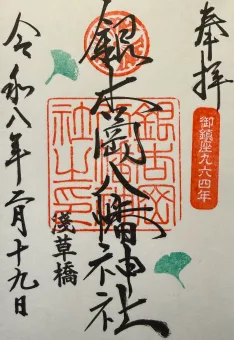 奉拝
御鎮座九六四年
銀杏岡八幡神社
浅草橋
令和八年二月十九日